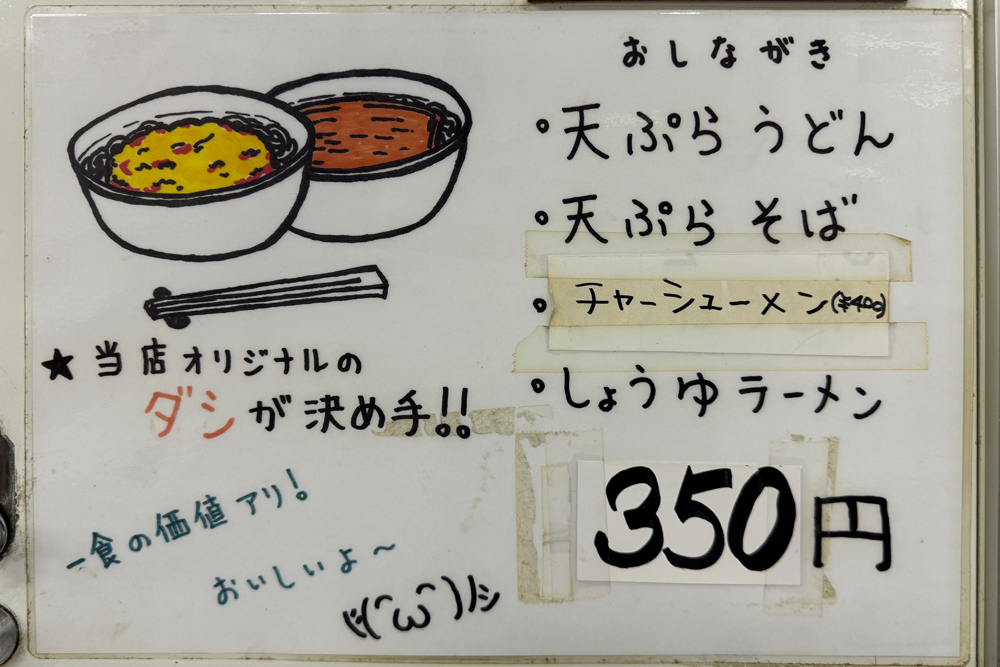 おしながき
・天ぷらうどん
・天ぷらそば
・チャーシューメン(¥400)
・しょうゆラーメン
350円
★当店オリジナルの
ダシが決め手!!
一食の価値アリ!
おいしいよ〜